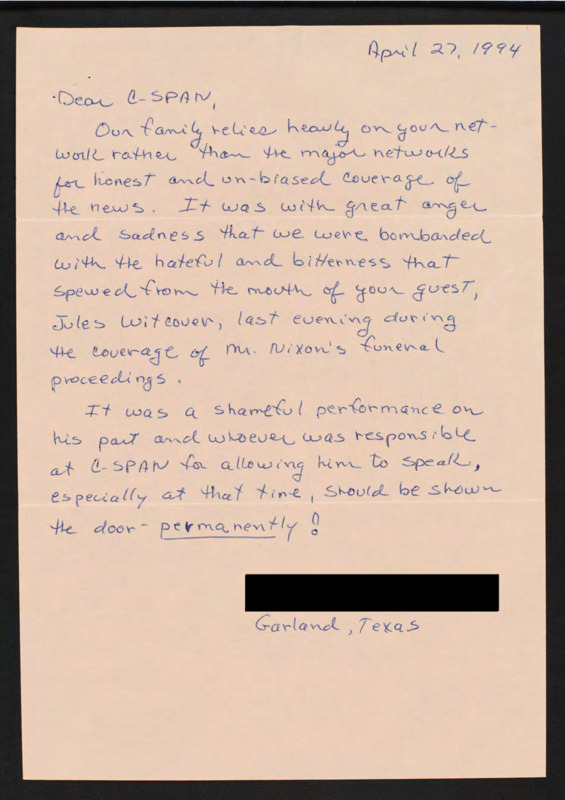 April 27, 1994
Dear C-SPAN,
Our family relies heavily on your net-
work rather than the major networks
for honest and un-biased coverage of
the news. It was with great anger
and sadness that we were bombarded
with the hateful and bitterness that
spewed from the mouth of your guest,
Jules Witcover, last evening during
the coverage of Mr. Nixon's funeral
proceedings.
It was a shameful performance on
his part and whoever was responsible
at C-SPAN for allowing him to speak,
especially at that time, should be shown
the door - permanently!
Garland, Texas